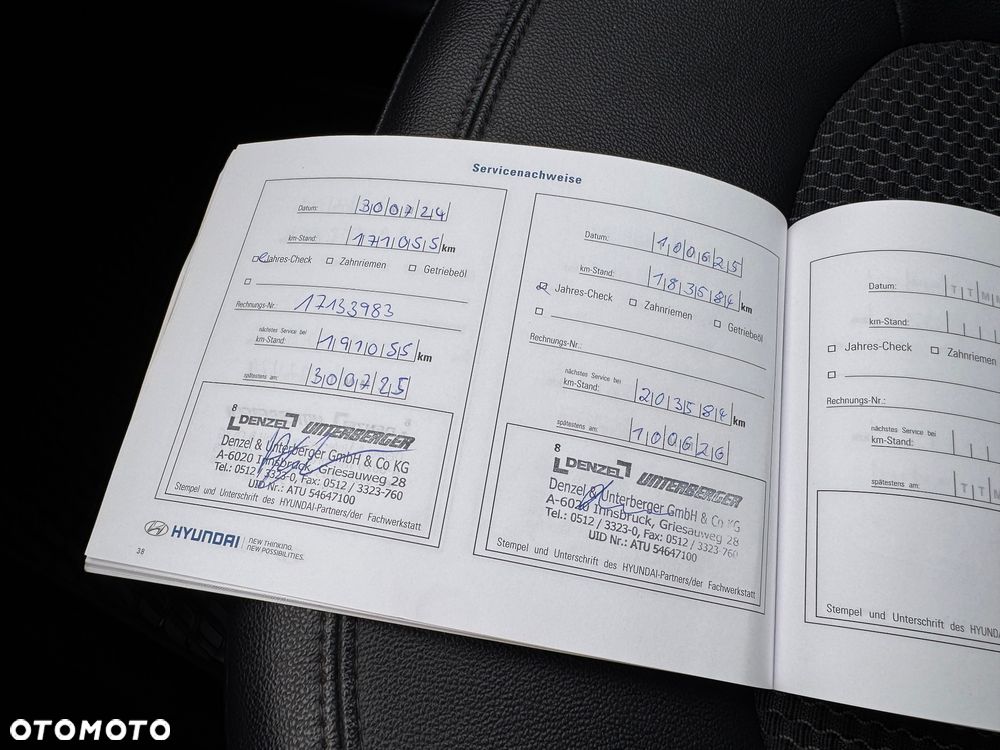 Servicenachweise
Datum: 300724
km-Stand: 171055 km
Jahres-Check Zahnriemen Getriebeöl
Rechnungs-Nr.: 17133983
nächstes Service bei
km-Stand: 191055 km
spätestens am: 300725
8
DENZEL UNTERBERGER
Denzel & Unterberger GmbH & Co KG
A-6020 Innsbruck, Griesauweg 28
Tel.: 0512 / 3323-0, Fax: 0512 / 3323-760
UID Nr.: ATU 54647100
Stempel und Unterschrift des HYUNDAI-Partners/der Fachwerkstatt
HYUNDAI NEW THINKING.
NEW POSSIBILITIES.
38
Datum: 100625
km-Stand: 183584 km
Jahres-Check Zahnriemen Getriebeöl
Rechnungs-Nr.:
nächstes Service bei
km-Stand: 203584 km
spätestens am: 100626
8
DENZEL UNTERBERGER
Denzel & Unterberger GmbH & Co KG
A-6020 Innsbruck, Griesauweg 28
Tel.: 0512 / 3323-0, Fax: 0512 / 3323 760
UID Nr.: ATU 54647100
Stempel und Unterschrift des HYUNDAI-Partners/der Fachwerkstatt
Datum: T T M
km-Stand:
Jahres-Check Zahnriemen
Rechnungs-Nr.:
nächstes Service bei
km-Stand:
spätestens am: T T
Stempel und Unterschrift des HYUND
OTOMOTO